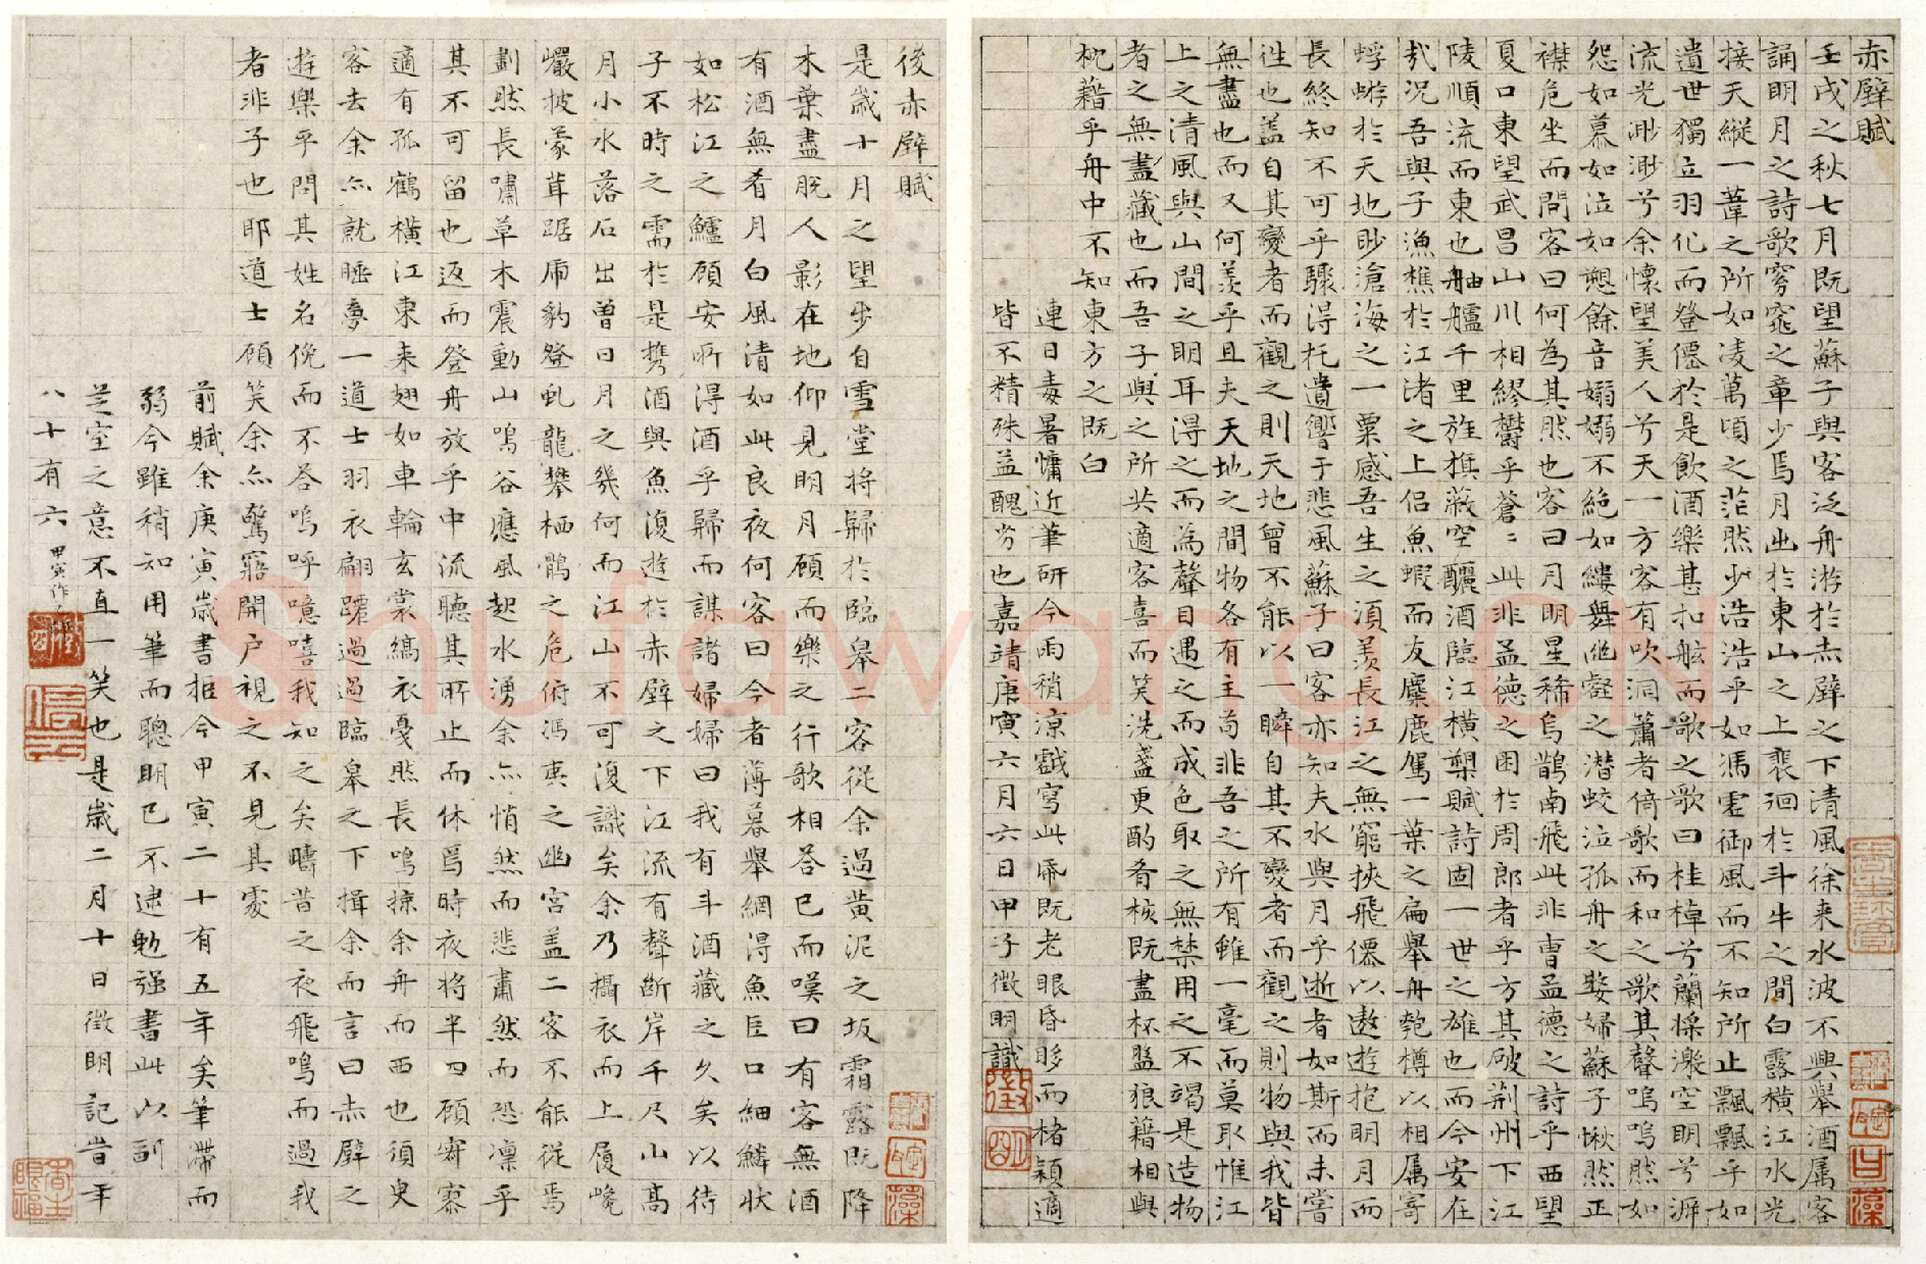 赤壁賦
壬戌之秋七月既望蘇子與客泛舟游於赤壁之下清風徐来水波不興舉酒属客
誦明月之詩歌窈窕之章少焉月出於東山之上裴洄於斗牛之間白露橫江水光
接天縱一葦之所如凌萬頃之茫然少浩浩乎如馮虛御風而不知所止飄飄乎如
遺世獨立羽化而登僊於是飲酒樂甚扣舷而歌之歌曰桂棹兮蘭槳擊空明兮泝
流光渺渺兮余懷望美人兮天一方客有吹洞簫者倚歌而和之歌其聲嗚嗚然如
怨如慕如泣如愬餘音嫋嫋不絕如縷舞幽壑之潛蛟泣孤舟之嫠婦蘇子愀然正
襟危坐而問客曰何為其然也客曰月明星稀烏鵲南飛此非曹孟德之詩乎西望
夏口東望武昌山川相繆欝乎蒼〻此非孟德之困於周郎者乎方其破荆州下江
陵順流而東也舳艫千里旌旗蔽空釃酒臨江橫槊賦詩固一世之雄也而今安在
㢤况吾與子漁樵於江渚之上侣魚蝦而友麋鹿駕一葉之扁舉舟匏樽以相属寄
蜉蝣於天地眇滄海之一粟感吾生之須羡長江之無窮挾飛僊以遨遊抱明月而
長終知不可乎驟得托遺響于悲風蘇子曰客亦知夫水與月乎逝者如斯而未嘗
往也盖自其變者而觀之則天地曾不能以一瞬自其不變者而觀之則物與我皆
無盡也而又何羡乎且夫天地之間物各有主苟非吾之所有雖一毫而莫取惟江
上之清風與山間之明耳得之而為聲目遇之而成色取之無禁用之不竭是造物
者之無盡藏也而吾子與之所共適客喜而笑洗盞更酌肴核既盡杯盤狼籍相與
枕藉乎舟中不知東方之既白
連日毒暑慵近筆研今雨稍凉戲寫此既老眼昏眵而楮穎適
皆不精殊益醜劣也嘉靖庚寅六月六日甲子徵明識
後赤壁賦
是歲十月之望步自雪堂將歸於臨皋二客從余過黄泥之坂霜露既降
木葉盡脫人影在地仰見明月顧而樂之行歌相荅已而嘆曰有客無酒
有酒無肴月白風清如此良夜何客曰今者薄暮舉網得魚巨口細鱗狀
如松江之鱸顧安所得酒乎歸而謀諸婦婦曰我有斗酒藏之久矣以待
子不時之需於是携酒與魚復遊於赤壁之下江流有聲斷岸千尺山高
月小水落石出曾日月之幾何而江山不可復識矣余乃攝衣而上履巉
巖披蒙茸踞虎豹登虬龍攀栖鶻之危俯馮夷之幽宫盖二客不能從焉
劃然長嘯草木震動山鳴谷應風起水湧余亦悄然而悲肅然而恐凜乎
其不可留也返而登舟放乎中流聽其所止而休焉時夜将半四顧寂寥
適有孤鶴橫江東来翅如車輪玄裳縞衣戛然長鳴掠余舟而西也須臾
客去余亦就睡夢一道士羽衣翩躚過過臨皋之下揖余而言曰赤壁之
遊樂乎問其姓名俛而不荅嗚呼噫嘻我知之矣疇昔之夜飛鳴而過我
者非子也耶道士顧笑余亦驚寤開户視之不見其處
前賦余庚寅歲書抵今甲寅二十有五年矣筆滯而
弱今雖稍知用筆而聰明已不逮勉强書此以副
芝室之意不直一笑也是歲二月十日徵明記旹年
八十有六
甲寅作
Shufawang.cn